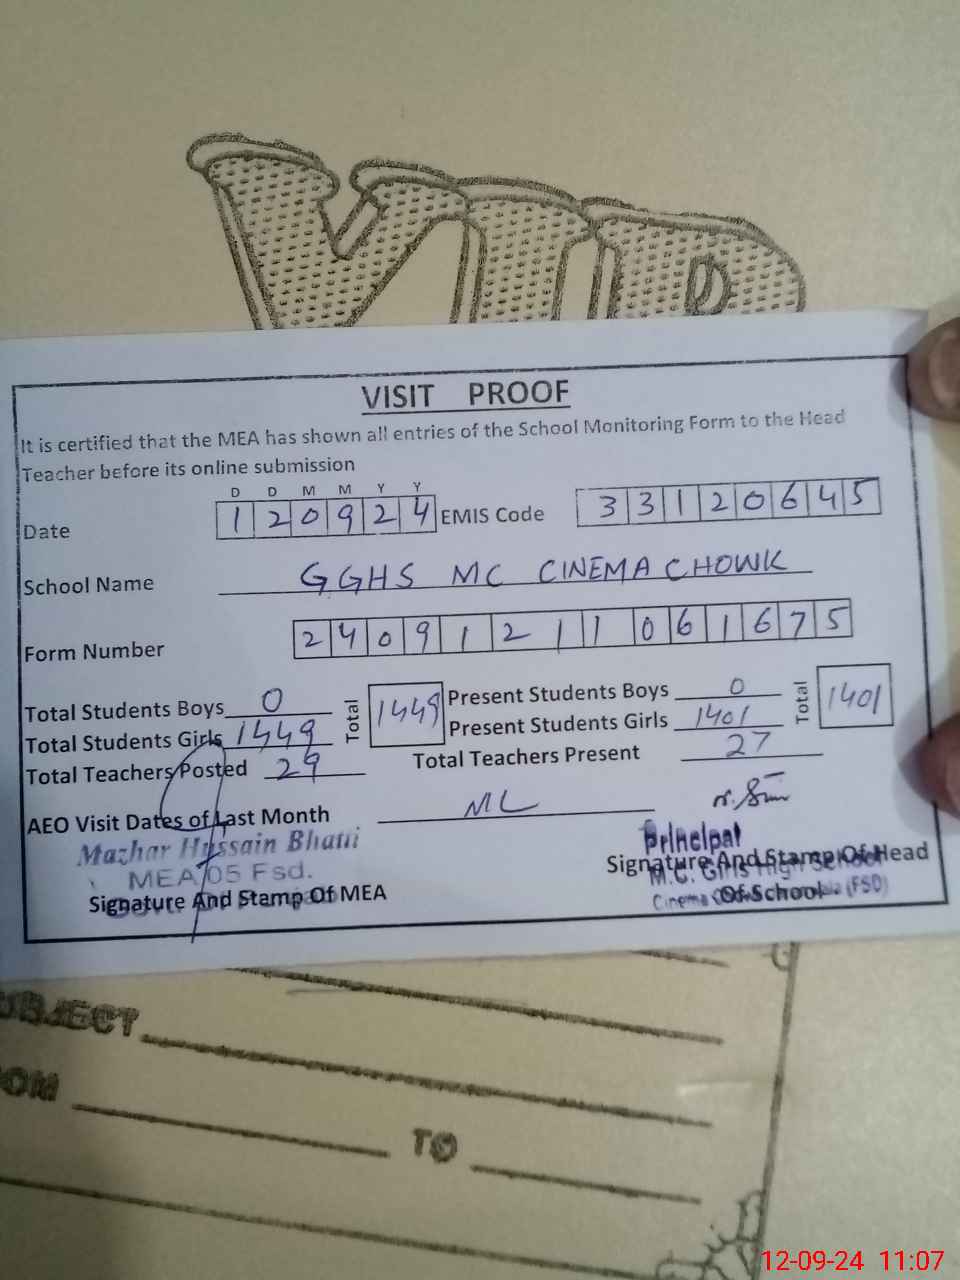 VIP
VISIT PROOF
It is certified that the MEA has shown all entries of the School Monitoring Form to the Head
Teacher before its online submission
D D M M Y Y
Date 1 2 0 9 2 4 EMIS Code 3 3 1 2 0 6 4 5
School Name GGHS MC CINEMA CHOWK
Form Number 2 4 0 9 1 2 1 1 0 6 1 6 7 5
Total Students Boys 0 Total 1449 Present Students Boys 0 Total 1401
Total Students Girls 1449 Present Students Girls 1401
Total Teachers Posted 29 Total Teachers Present 27
AEO Visit Dates of Last Month ML
Mazhar Hussain Bhatti
MEA 05 Fsd.
Signature And Stamp Of MEA
Principal
Signature And Stamp Of Head
M.C. Girls High School
Of School
Cinema (FSD)
SUBJECT
TO
12-09-24 11:07